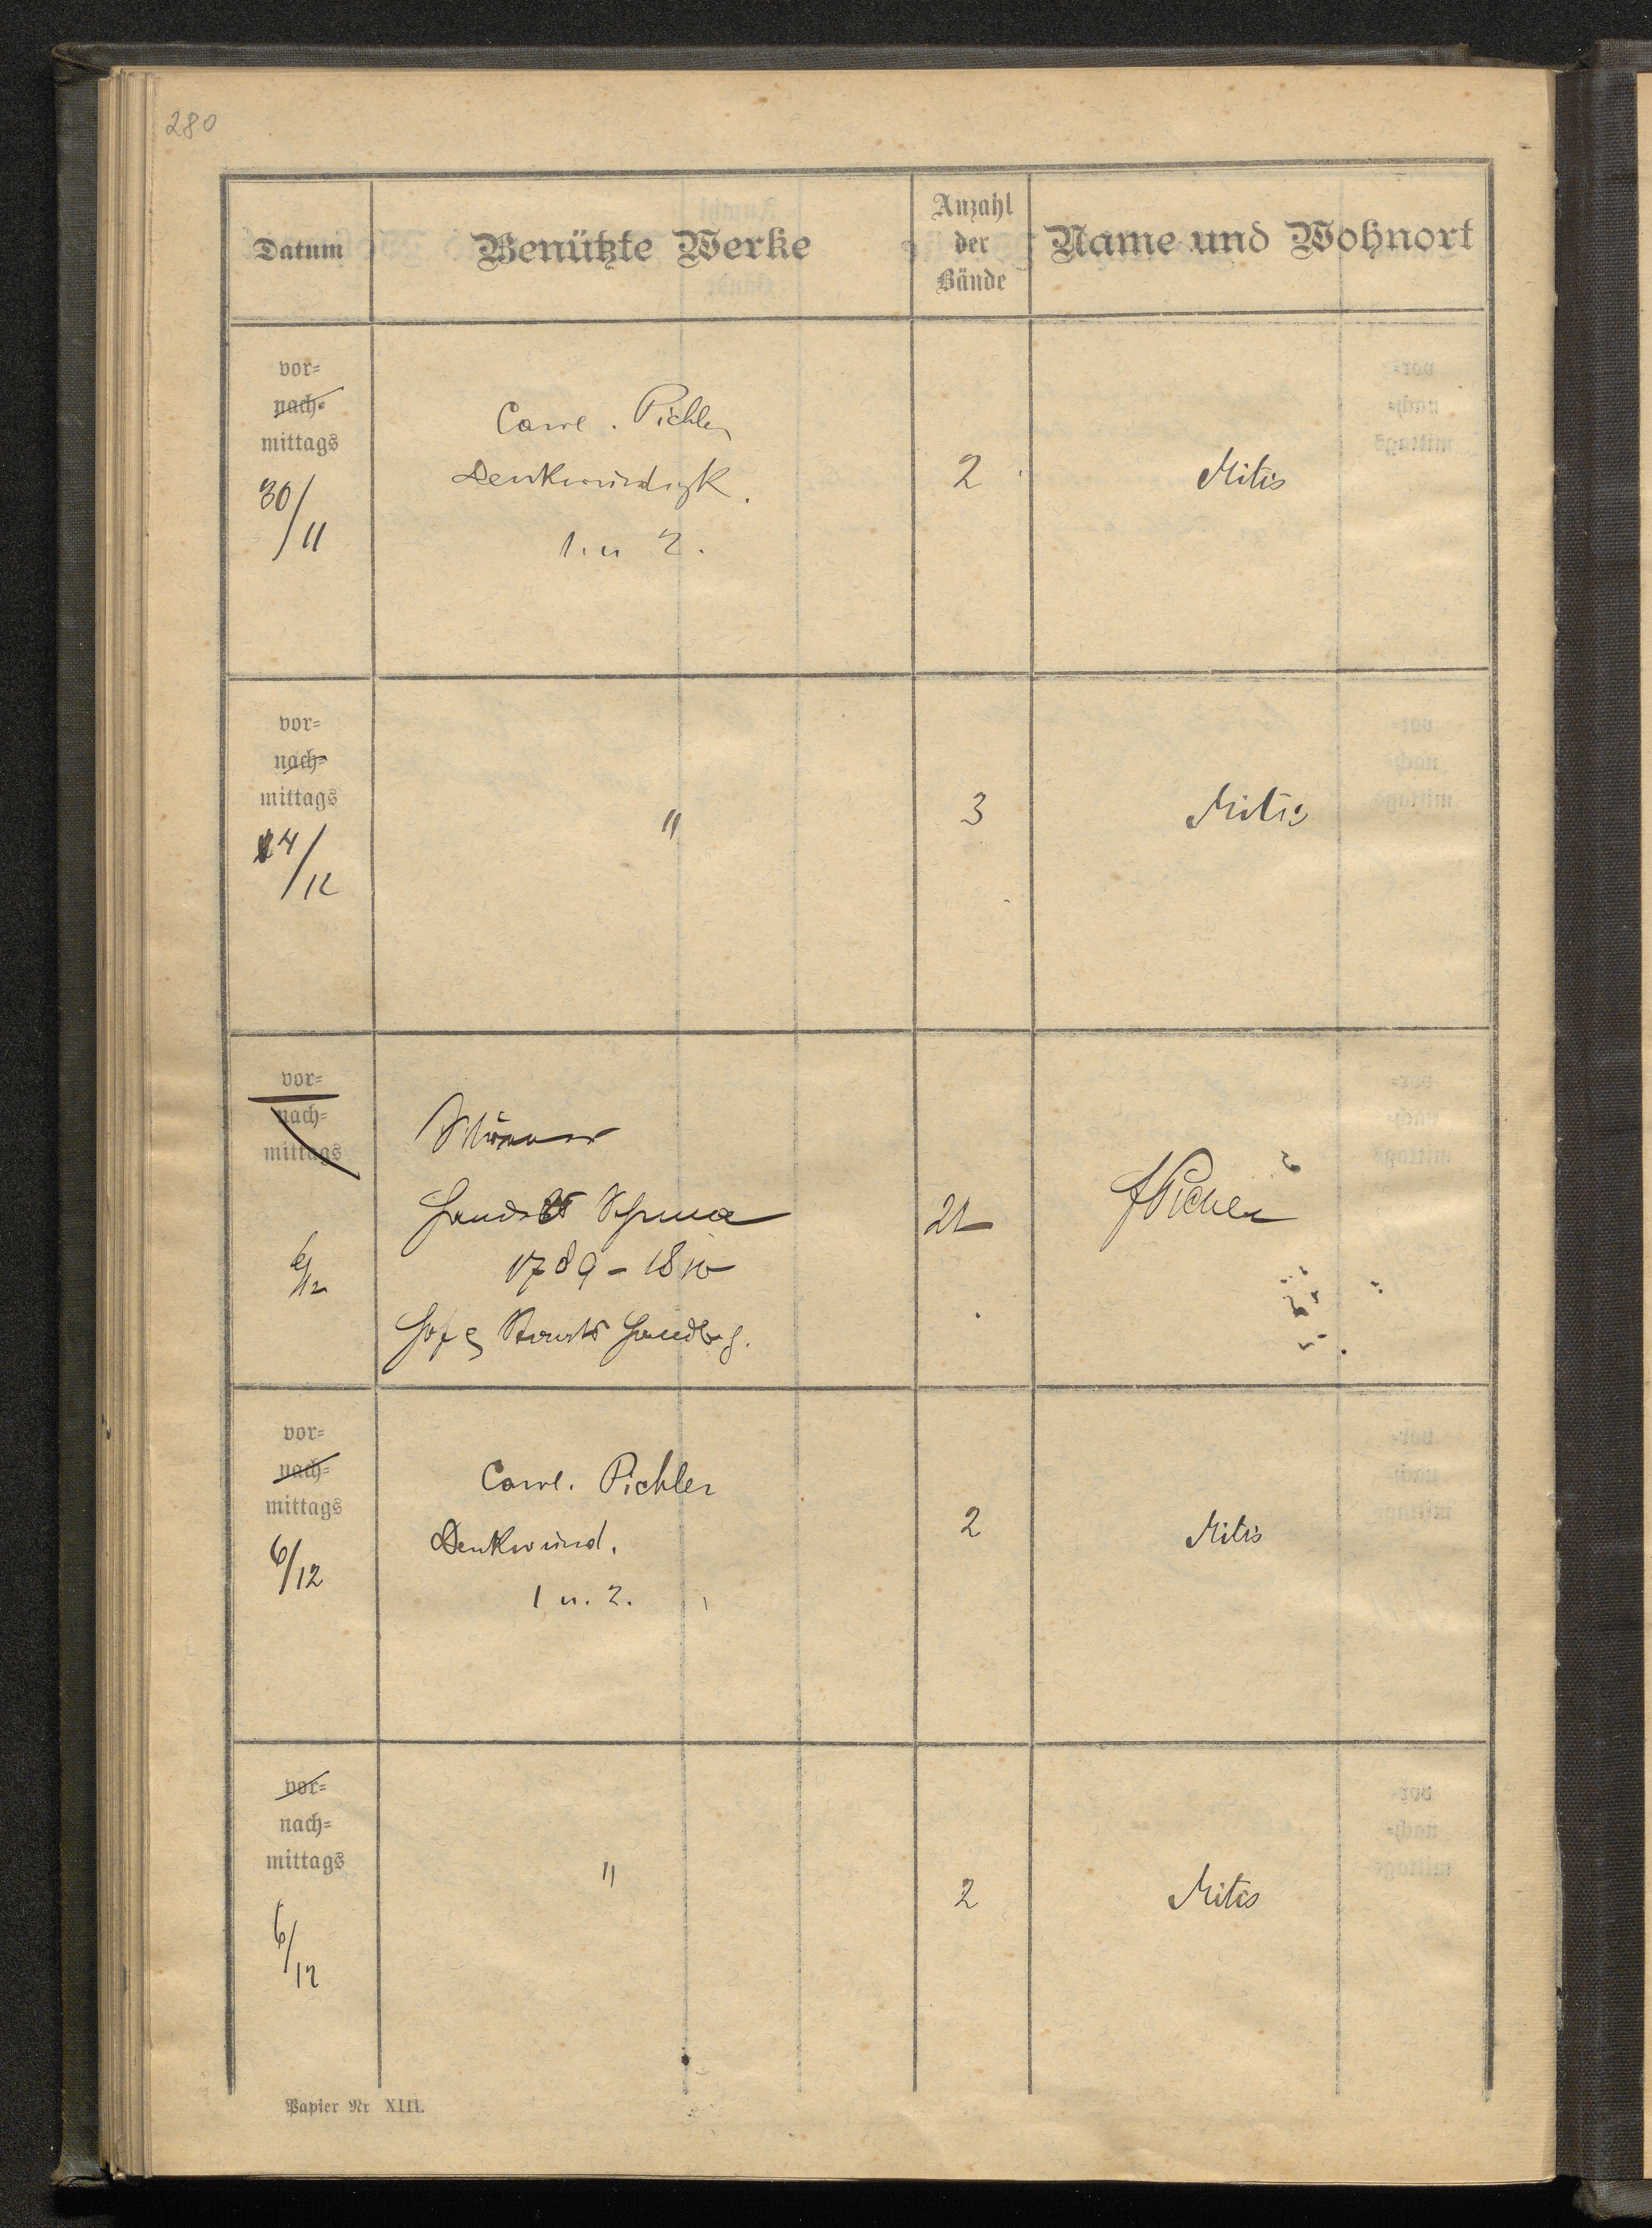 280
Datum
Benützte Werke
Anzahl
der
Bände
Name und Wohnort
vor-
nach-
mittags
30/11
Carol. Pichler
Denkwürdigk.
1. u 2.
2
Mitis
vor-
nach-
mittags
4/12
"
3
Mitis
vor-
nach-
mittags
6/12
Handels Schema
1789 - 1810
Hof & Staats Handb.
21
vor-
nach-
mittags
6/12
Carol. Pichler
Denkwürd.
1 u. 2.
2
Mitis
vor-
nach-
mittags
6/12
"
2
Mitis
Papier Nr XIII.